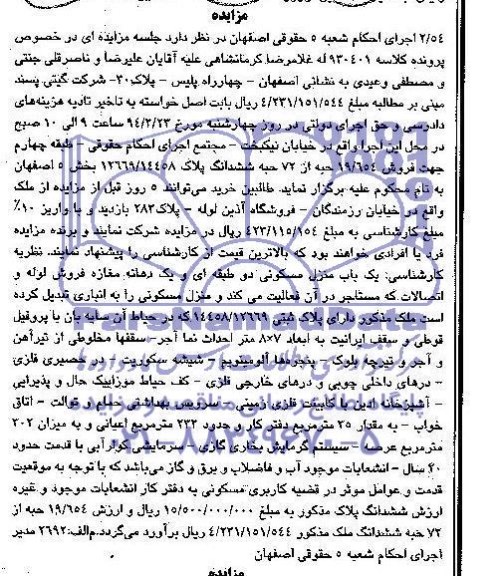 مزایده
۲/۵۴ اجرای احکام شعبه ۵ حقوقی اصفهان در نظر دارد جلسه مزایده ای در خصوص
پرونده کلاسه ۹۳۰۴۰۱ له غلامرضا کرمانشاهی علیه آقایان علیرضا و ناصرقلی جنتی
و مصطفی وعیدی به نشانی اصفهان - چهارراه پلیس - پلاک۳۰- شرکت گیتی پسند
مبنی بر مطالبه مبلغ ۴/۲۳۱/۱۵۱/۵۴۴ ریال بابت اصل خواسته به تاخیر تادیه هزینه‌های
دادرسی و حق اجرای دولتی در روز چهارشنبه مورخ ۹۴/۳/۲۳ ساعت ۹ الی ۱۰ صبح
در محل این اجرا واقع در خیابان نیکبخت - مجتمع اجرای احکام حقوقی - طبقه چهارم
جهت فروش ۱۹/۶۵۴ حبه از ۷۲ حبه ششدانگ پلاک ۱۲۶۶۹/۱۴۴۵۸ بخش ۵ اصفهان
به نام محکوم علیه برگزار نماید طالبین خرید می‌توانند ۵ روز قبل از مزایده از ملک
واقع در خیابان رزمندگان - فروشگاه آذین لوله - پلاک۲۸۳ بازدید و با واریز ۱۰٪
مبلغ کارشناسی به مبلغ ۴۲۳/۱۱۵/۱۵۴ ریال در مزایده شرکت نمایند و برنده مزایده
فرد یا افرادی خواهند بود که بالاترین قیمت از کارشناسی را پیشنهاد نمایند. نظریه
کارشناسی: یک باب منزل مسکونی دو طبقه ای و یک دهانه مغازه فروش لوله و
اتصالات که مستاجر در آن فعالیت می کند و منزل مسکونی را به انباری تبدیل کرده
است ملک مذکور دارای پلاک ثبتی ۱۴۴۵۸/۱۲۶۶۹ که در حیاط آن سایه بان با پروفیل
قوطی و سقف ایرانیت به ابعاد ۷×۸ متر احداث نما آجر-سقفها مخلوطی از تیرآهن
و آجر و تیرچه بلوک - پنجره‌ها آلومینیوم - شیشه سکوریت - در حصیری فلزی
- درهای داخلی چوبی و درهای خارجی فلزی - کف حیاط موزاییک حال و پذیرایی
- آشپزخانه اپن با کابینت فلزی زمینی - سرویس بهداشتی حمام و توالت - اتاق
خواب - به مقدار ۲۵ مترمربع دفتر کار و حدود ۲۳۳ مترمربع اعیانی و به میزان ۳۰۲
مترمربع عرصه - سیستم گرمایش بخاری گازی - سرمایشی کولرآبی با قدمت حدود
۴۰ سال - انشعابات موجود آب و فاضلاب و برق و گاز می‌باشد که با توجه به موقعیت
قدمت و عوامل موثر در قضیه کاربری مسکونی به دفتر کار انشعابات موجود و غیره
ارزش ششدانگ پلاک مذکور به مبلغ ۱۵/۵۰۰/۰۰۰/۰۰۰ ریال و ارزش ۱۹/۶۵۴ حبه از
۷۲ حبه ششدانگ ملک مذکور ۴/۲۳۱/۱۵۱/۵۴۴ ریال برآورد می‌گردد.م‌الف:۲۶۹۲ مدیر
اجرای احکام شعبه ۵ حقوقی اصفهان
مزایده
ParsNamadData
۰۲۱-۸۸۳۴۹۶۷۰-۵